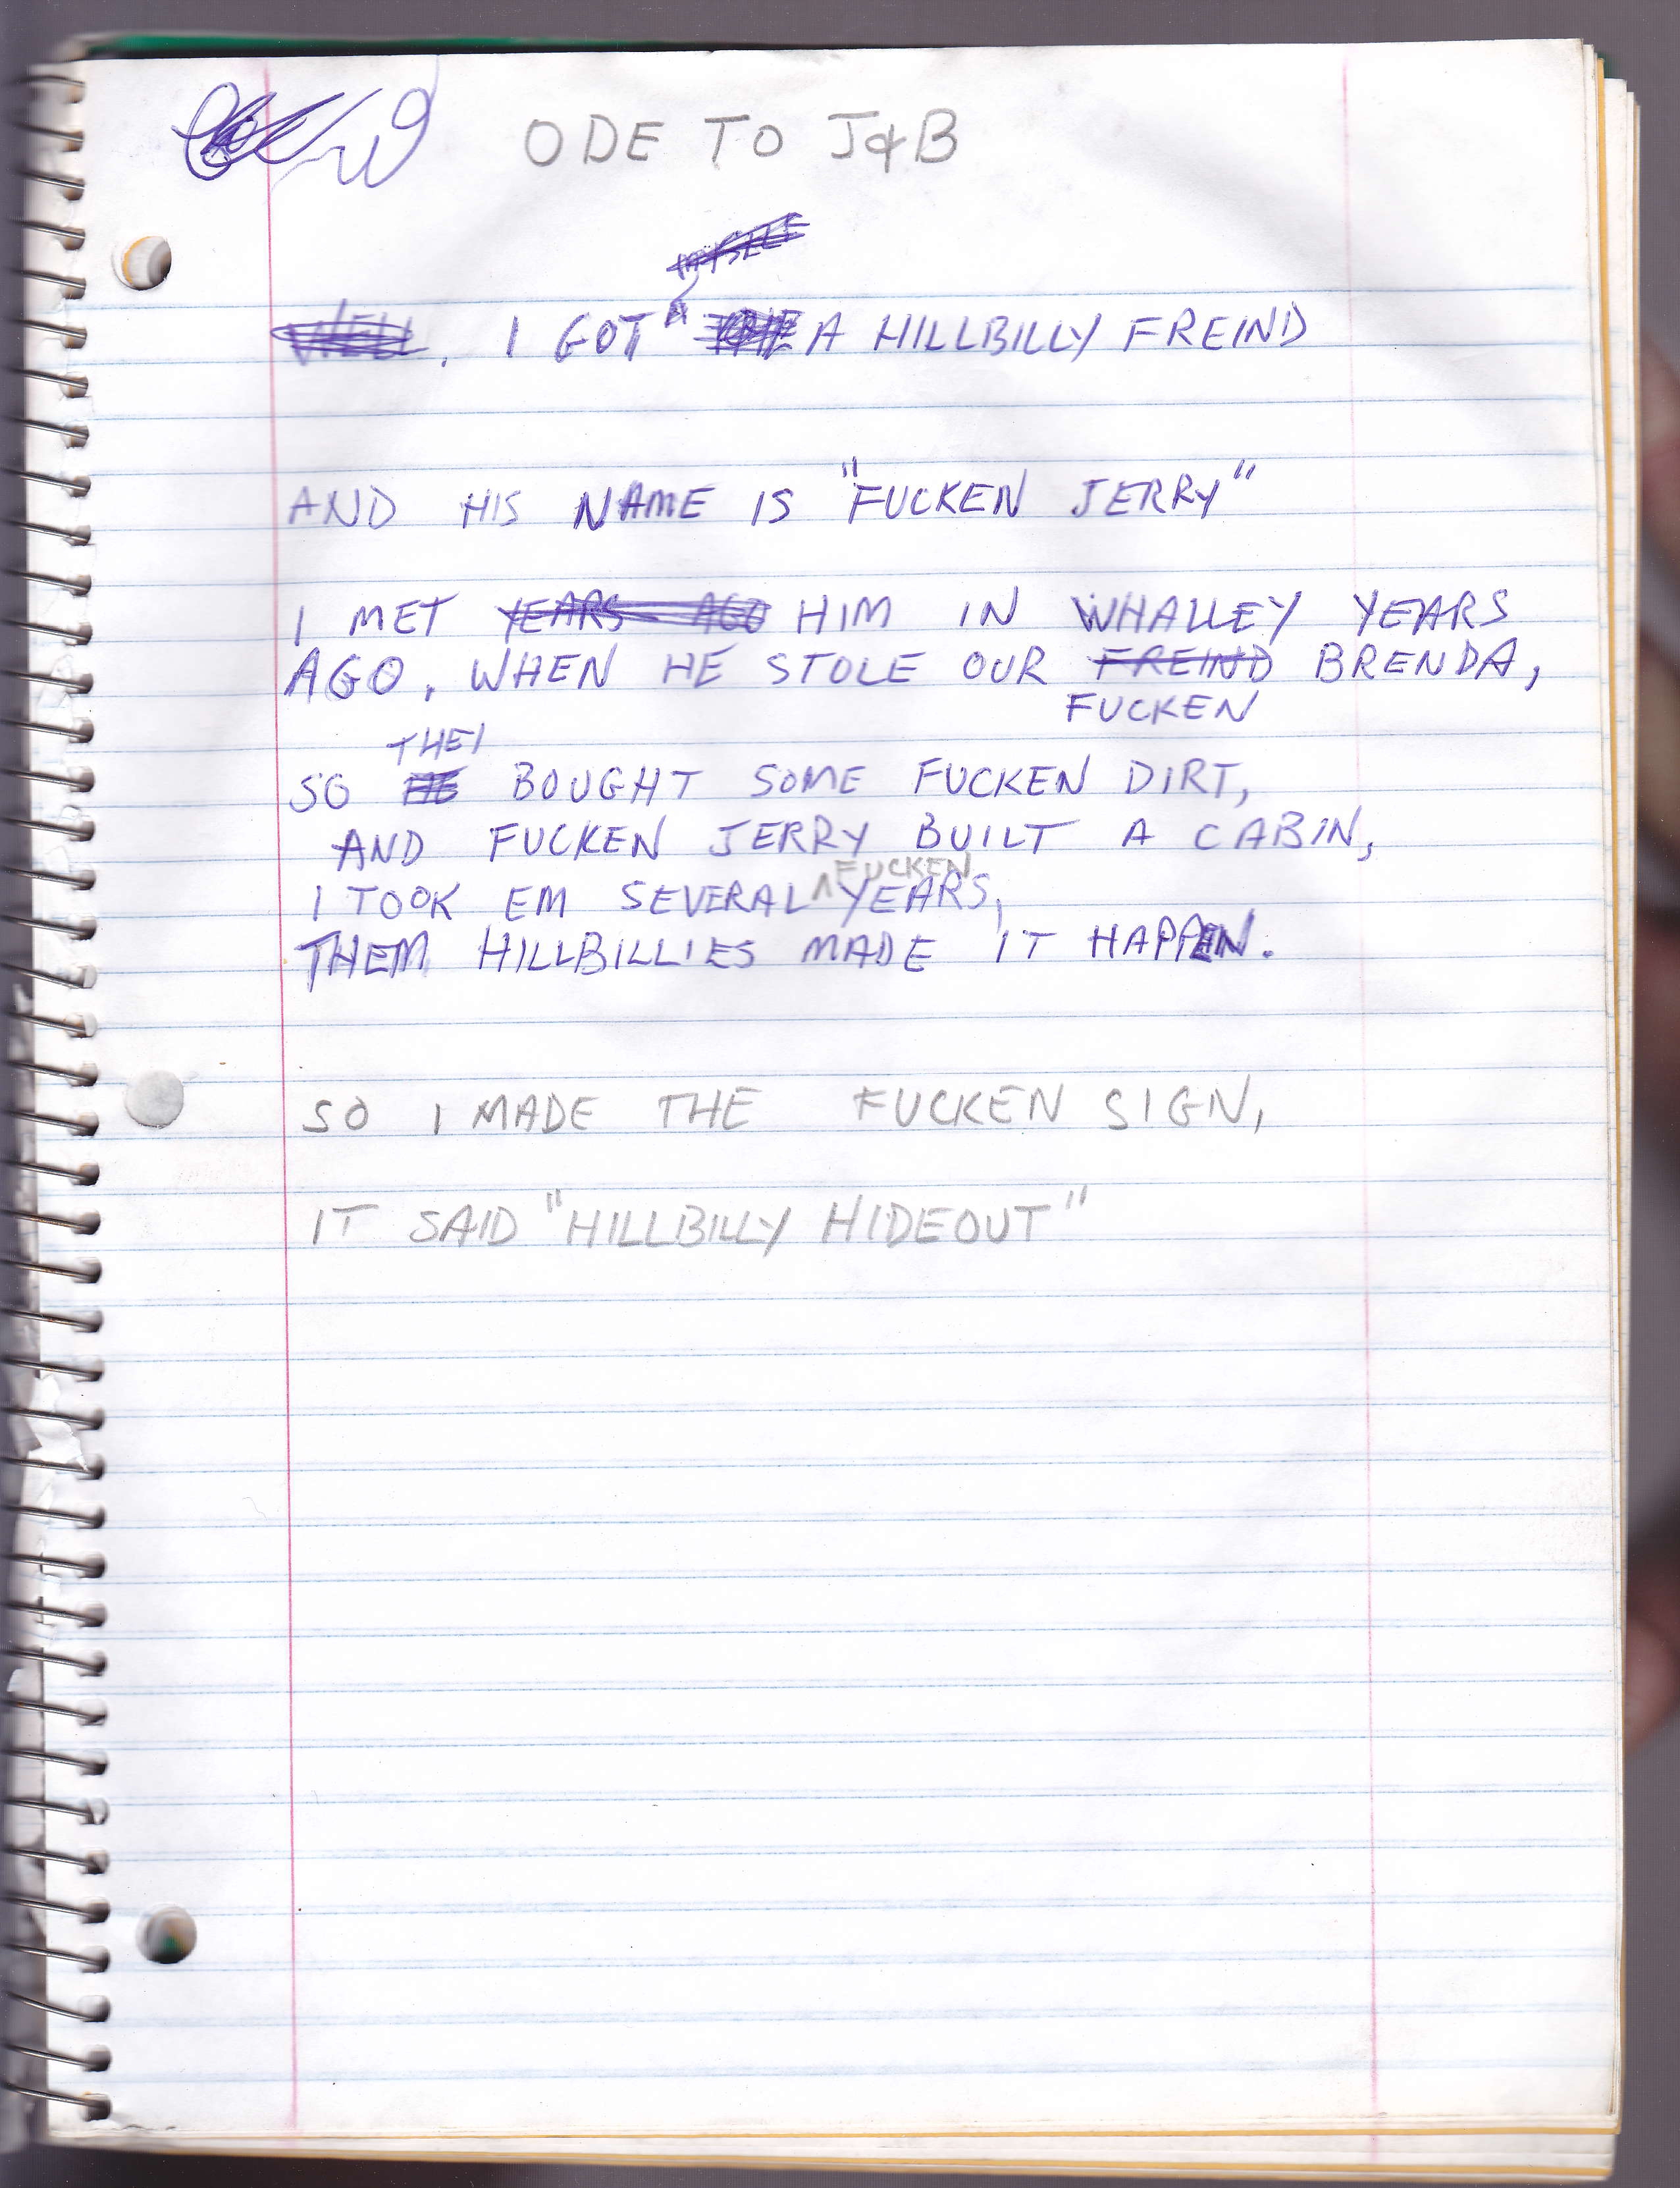 ODE TO J&B
MYSELF
WELL, I GOT A HILLBILLY FREIND
AND HIS NAME IS "FUCKEN JERRY"
I MET YEARS AGO HIM IN WHALLEY YEARS
AGO, WHEN HE STOLE OUR FREIND BRENDA,
FUCKEN
THEI
SO HE BOUGHT SOME FUCKEN DIRT,
AND FUCKEN JERRY BUILT A CABIN,
FUCKEN
I TOOK EM SEVERAL YEARS,
THEM HILLBILLIES MADE IT HAPPEN.
SO I MADE THE FUCKEN SIGN,
IT SAID "HILLBILLY HIDEOUT"